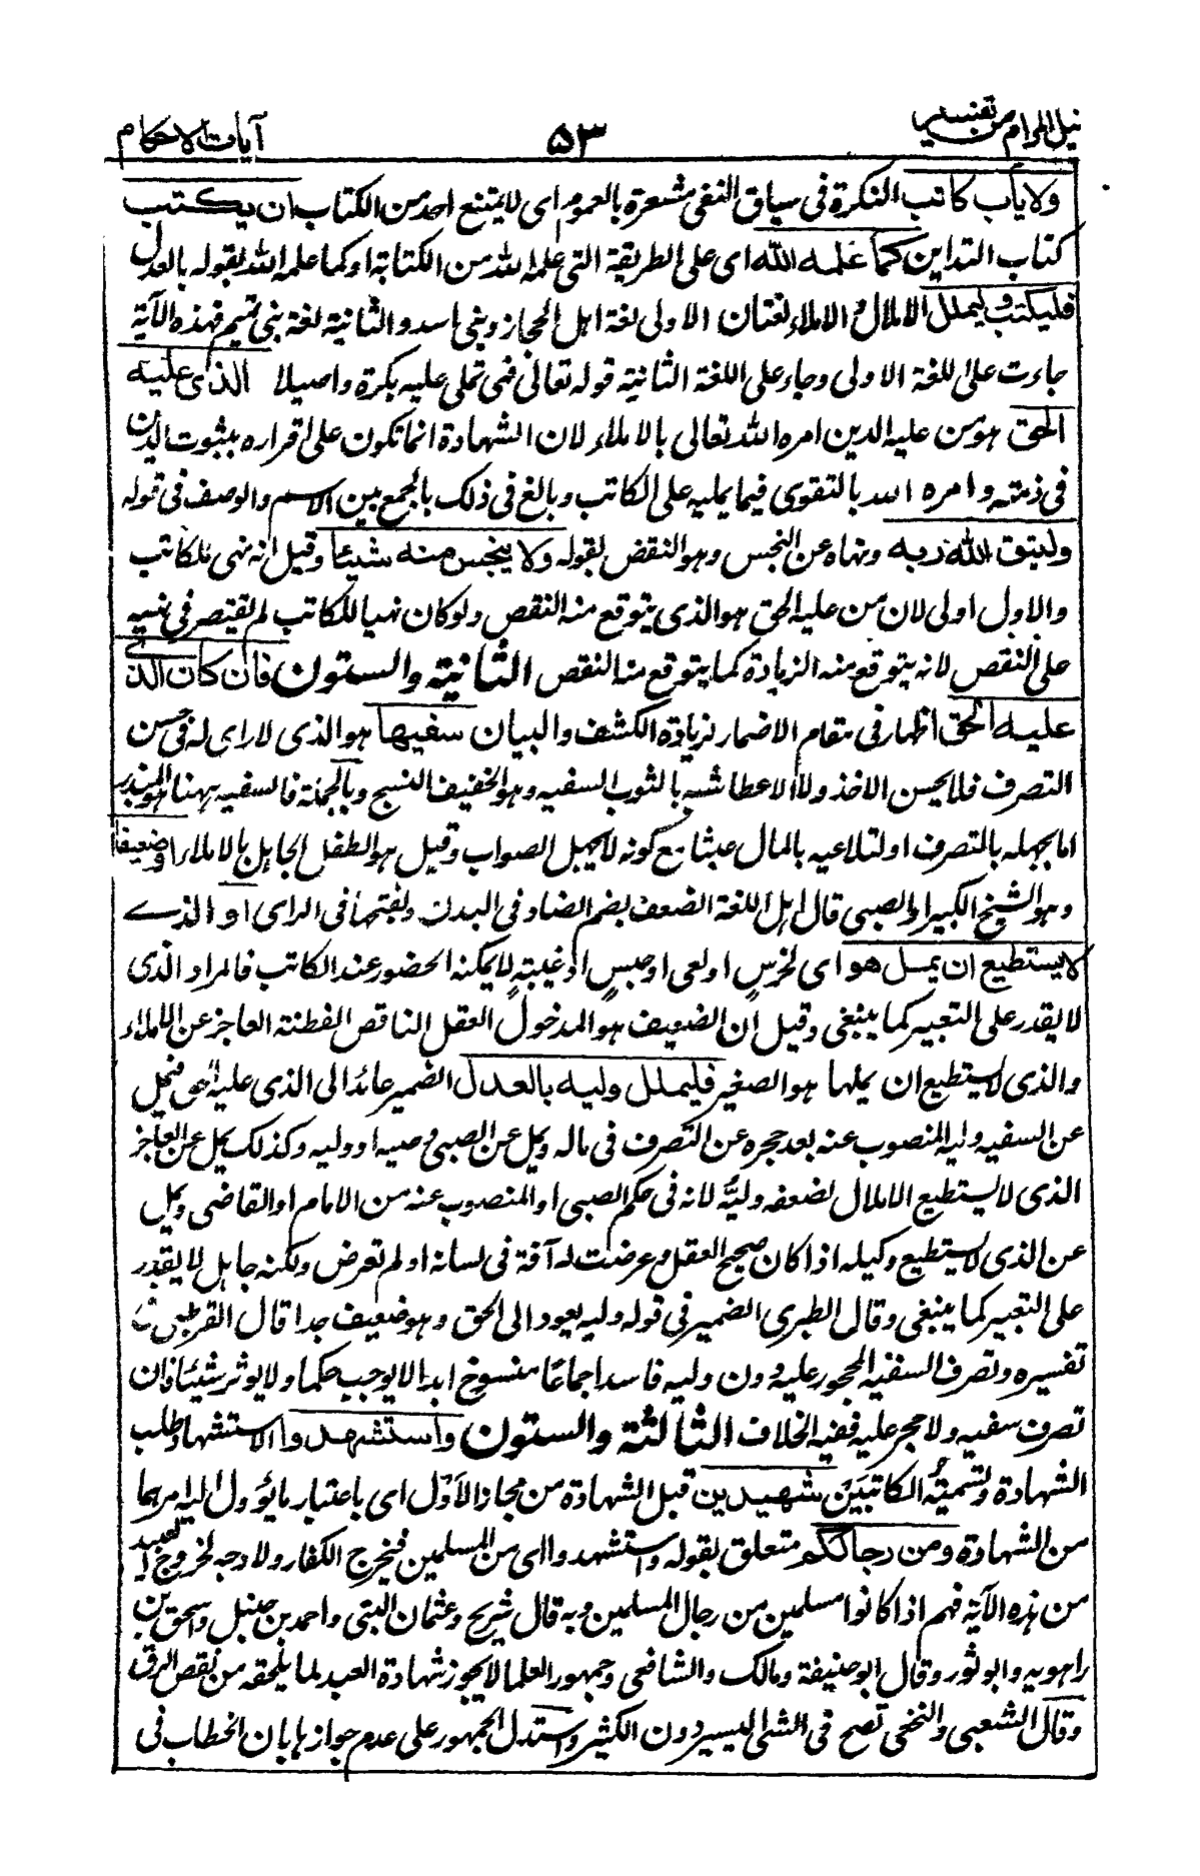 نيل المرام من تفسير
٥٣
آيات الاحكام
ولا يأب كاتب النكرة فى سياق النفى مشعرة بالعموم اى لا يمتنع احد من الكتاب ان يكتب
كتاب التداين كما علمه الله اى على الطريقة التى علمه الله من الكتابة او كما علمه الله بقوله بالعدل
فليكتب وليملل الاملال والاملاء لغتان الاولى لغة اهل الحجاز وبنى اسد والثانية لغة بنى تميم فهذه الآية
جاءت على اللغة الاولى وجاء على اللغة الثانية قوله تعالى فهى تملى عليه بكرة واصيلا الذى عليه
الحق هو من عليه الدين امره الله تعالى بالاملاء لان الشهادة انما تكون على اقراره بثبوت الدين
فى ذمته وامره الله بالتقوى فيما يمليه على الكاتب وبالغ فى ذلك بالجمع بين الاسم والوصف فى قوله
وليتق الله ربه ونهاه عن البخس وهو النقص بقوله ولا يبخس منه شيئا وقيل انه نهى للكاتب
والاول اولى لان من عليه الحق هو الذى يتوقع منه النقص ولو كان نهيا للكاتب لم يقتصر فى نهيه
على النقص لانه يتوقع منه الزيادة كما يتوقع منه النقص الثانية والستون فان كان الذى
عليه الحق اظهار فى مقام الاضمار لزيادة الكشف والبيان سفيها هو الذى لا راى له فى حسن
التصرف فلا يحسن الاخذ ولا الاعطا شبه بالثوب السفيه وهو الخفيف النسج وبالجملة فالسفيه ههنا هو المبذر
اما بجهله بالتصرف او لتلاعبه بالمال عبثا مع كونه لا يجهل الصواب وقيل هو الطفل الجاهل بالاملاء او ضعيفا
وهو الشيخ الكبير او الصبى قال اهل اللغة الضعف بضم الضاد فى البدن وبفتحها فى الراى او الذے
لا يستطيع ان يمل هو اى لخرسٍ او لعى او حبسٍ او غيبةٍ لا يمكنه الحضور عند الكاتب فالمراد الذى
لا يقدر على التعبير كما ينبغى وقيل ان الضعيف هو المدخول العقل الناقص الفطنة العاجز عن الاملاء
والذى لا يستطيع ان يملها هو الصغير فليملل وليه بالعدل الضمير عائد الى الذى عليه الحق فيمل
عن السفيه وليه المنصوب عنه بعد حجره عن التصرف فى ماله ويمل عن الصبى وصيه او وليه وكذلك يمل عن العاجز
الذى لا يستطيع الاملال لضعفه وليُّه لانه فى حكم الصبى او المنصوب عنه من الامام او القاضى ويمل
عن الذى لا يستطيع وكيله اذا كان صحيح العقل وعرضت له آفة فى لسانه او لم تعرض ولكنه جاهل لا يقدر
على التعبير كما ينبغى وقال الطبرى الضمير فى قوله وليه يعود الى الحق وهو ضعيف جدا قال القرطبى فى
تفسيره وتصرف السفيه المحجور عليه دون وليه فاسد اجماعًا منسوخ ابدا لا يوجب حكما ولا يوثر شيئا فان
تصرف سفيه ولا حجر عليه ففيه الخلاف الثالثة والستون واستشهدوا الاستشهاد طلب
الشهادة وتسميةُ الكاتبَيْن شهيدين قبل الشهادة من مجاز الأوْل اى باعتبار ما يؤول اليه امرهما
من الشهادة ومن رجالكم متعلق بقوله واستشهدوا اى من المسلمين فيخرج الكفار ولا وجه لخروج العبيد
من هذه الآية فهم اذا كانوا مسلمين من رجال المسلمين وبه قال شريح وعثمان البتى واحمد بن حنبل واسحق بن
راهويه وابو ثور وقال ابو حنيفة ومالك والشافعى وجمهور العلما لا يجوز شهادة العبد لما يلحقه من نقص الرق
وقال الشعبى والنخعى تصح فى الشئ اليسير دون الكثير واستدل الجمهور على عدم جوازها بان الخطاب فى